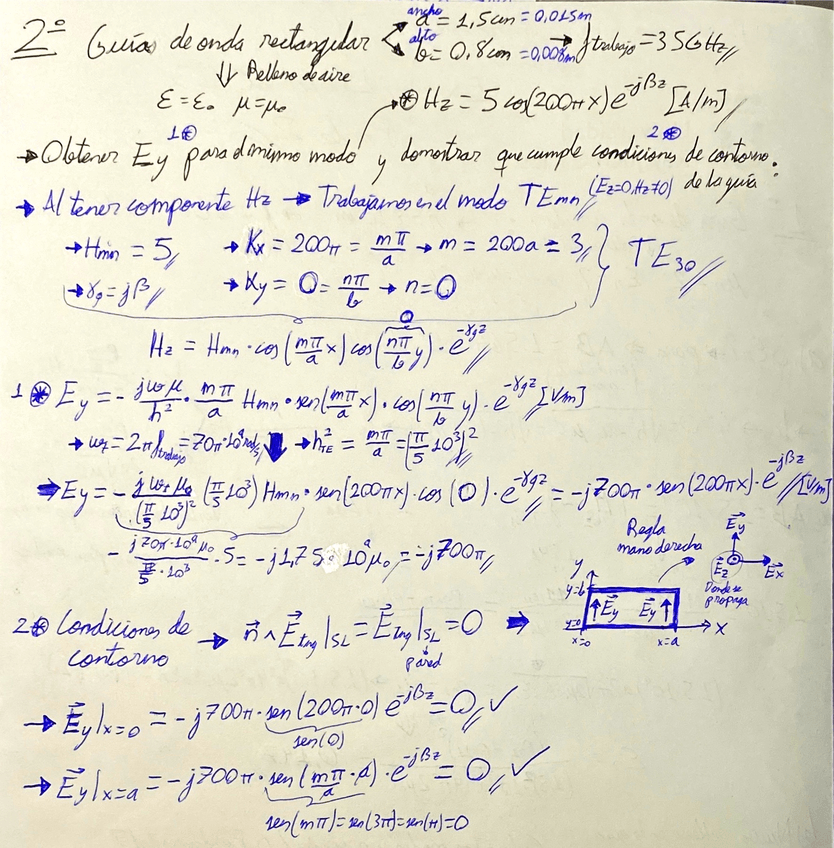 2º Guías de onda rectangular < ancho a = 1,5cm = 0,015m
alto b = 0,8cm = 0,008m → f trabajo = 35GHz
⇓ Relleno de aire
ε = ε₀ μ = μ₀ → ⊛ Hz = 5 cos(200πx) e^{-jβz} [A/m]
1⊛ 2⊛
→ Obtener Ey para el mismo modo y demostrar que cumple condiciones de contorno:
de la guía
→ Al tener componente Hz → Trabajamos en el modo TEmn (Ez=0, Hz≠0)
→ Hmn = 5 → Kx = 200π = mπ/a → m = 200a = 3 } TE30
→ γg = jβ → Ky = 0 = nπ/b → n = 0
0
Hz = Hmn · cos(mπ/a x) cos(nπ/b y) · e^{-γgz}
1⊛ Ey = - jωμ/h² · mπ/a Hmn · sen(mπ/a x) · cos(nπ/b y) · e^{-γgz} [V/m]
→ ωt = 2πf trabajo = 70π·10⁹ rad/s ⇓ → h²TE = mπ/a = (π/5 10³)²
⇒ Ey = - jωt μ₀/(π/5 10³)² (π/5 10³) Hmn · sen(200πx) · cos(0) · e^{-γgz} = -j700π · sen(200πx) · e^{-jβz} [V/m]
- j70π·10⁹μ₀/(π/5 · 10³) · 5 = -j1,75 10⁹μ₀ = -j700π
Regla
mano derecha
Ey
Ez Ex
Donde se
propaga
y
y=b
Ey Ey
y=0
x=0 x=a x
2⊛ Condiciones de
contorno → n ∧ E tng|SL = E tng|SL = 0 ⇒
pared
→ Ey|x=0 = -j700π · sen(200π·0) e^{-jβz} = 0 ✓
sen(0)
→ Ey|x=a = -j700π · sen(mπ/a · a) · e^{-jβz} = 0 ✓
sen(mπ) = sen(3π) = sen(π) = 0